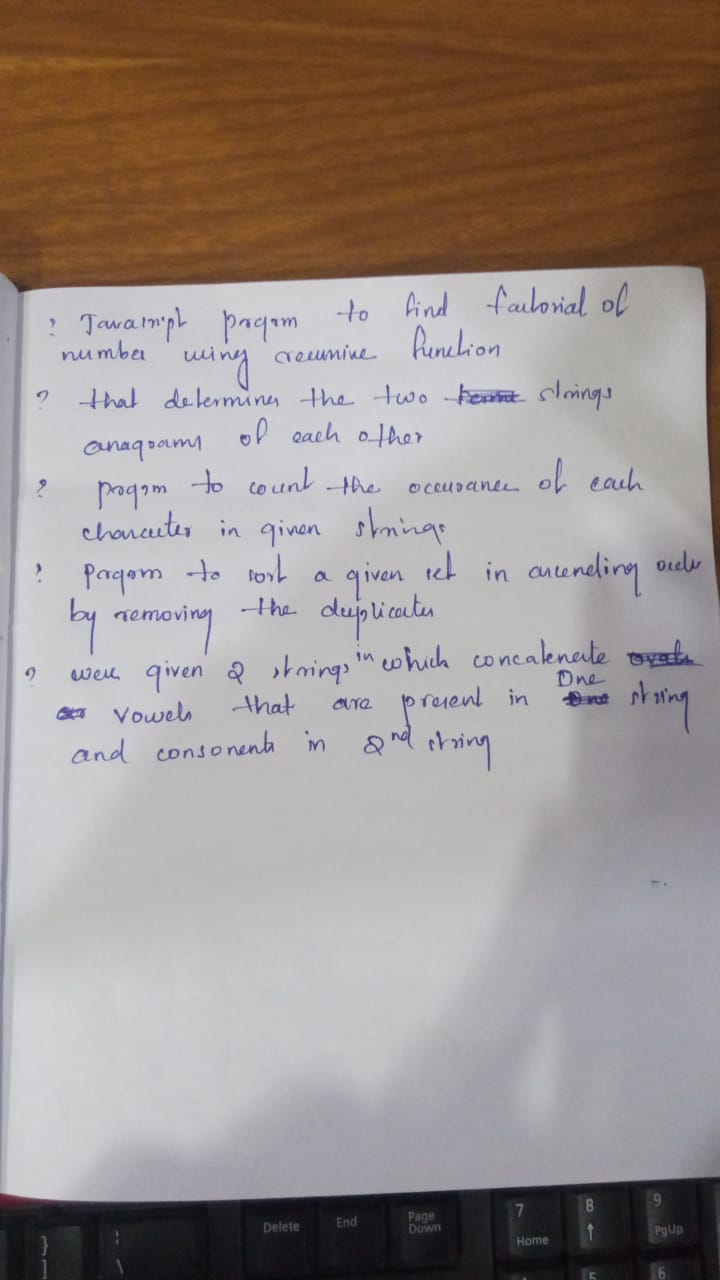 ? Javascript program to find factorial of
number using recursive function
? that determines the two strings
anagrams of each other
? progam to count the occurance of each
character in given strings
? Program to sort a given set in ascending order
by removing the duplicates
? were given 2 strings in which concatenate
vowels that are present in One string
and consonents in 2nd string
Delete
End
Page
Down
7
Home
8
↑
9
PgUp
}
]
¦
\
5
6